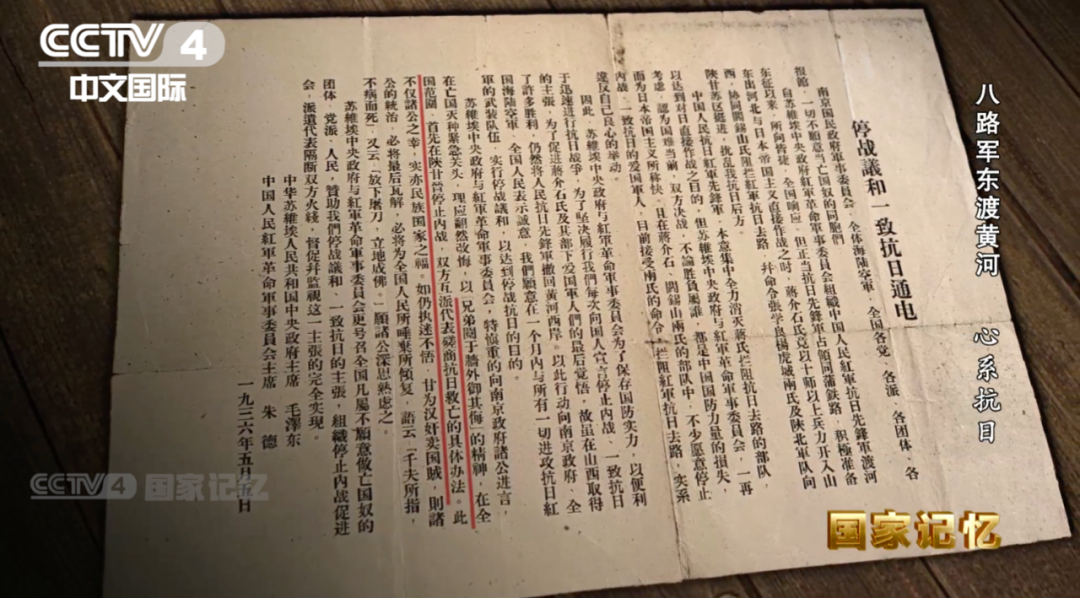 CCTV 4
中文国际
八路军东渡黄河 心系抗日
停战議和一致抗日通电
南京国民政府軍事委員会，全体海陆空軍，全国各党，各派，各团体，各
报館，一切不願意当亡国奴的同胞們
自苏維埃中央政府紅軍革命軍事委員会組織中国人民紅軍抗日先鋒軍渡河
东征以来，所向皆捷，全国响应，但正当抗日先鋒軍占領同蒲鉄路，积極准备
东出河北与日本帝国主义直接作战之时，蔣介石氏竟以十师以上兵力开入山
西，协同閻錫山氏阻拦紅軍抗日去路，幷命令张学良楊虎城兩氏及陕北軍队向
陕甘苏区挺进，扰乱我抗日后方。
中国人民抗日紅軍先鋒軍，本意集中全力消灭蔣氏拦阻抗日去路的部队，
以达到对日直接作战之目的，但苏維埃中央政府与紅軍革命軍事委員会，一再
考虑，認为国难当前，双方决战，不論胜負屬誰，都是中国国防力量的損失，
而为日本帝国主义所称快，且在蔣介石，閻錫山兩氏的部队中，不少愿意停止
内战，一致抗日的爱国軍人，目前接受兩氏的命令，拦阻紅軍抗日去路，实系
違反自己良心的举动。
因此，苏維埃中央政府与紅軍革命軍事委員会为了保存国防实力，以便利
于迅速进行抗日战爭，为了坚决履行我們每次向国人宣言停止内战、一致抗日
的主张，为了促进蔣介石氏及其部下爱国軍人們的最后觉悟，故虽在山西取得
了許多胜利，仍然将人民抗日先鋒軍撤回黄河西岸。以此行动向南京政府、全
国海陆空軍、全国人民表示誠意，我們願意在一个月内与所有一切进攻抗日紅
軍的武装队伍，实行停战議和，以达到停战抗日的目的。
苏維埃中央政府与紅軍革命軍事委員会，特愼重的向南京政府諸公进言，
在亡国灭种緊急关头，理应翻然改悔，以「兄弟閱于墻外御其侮」的精神，在全
国范圍，首先在陕甘晉停止内战，双方互派代表磋商抗日救亡的具体办法。此
不仅諸公之幸，实亦民族国家之福。如仍执迷不悟，甘为汉奸卖国贼，則諸
公的統治，必将最后瓦解，必将为全国人民所唾棄所傾复。語云「千夫所指，
不病而死」，又云「放下屠刀，立地成佛」。願諸公深思熟虑之。
苏維埃中央政府与紅軍革命軍事委員会更号召全国凡屬不願意做亡国奴的
团体、党派、人民，贊助我們停战議和、一致抗日的主张，組織停止内战促进
会，派遣代表隔断双方火綫，督促幷監视这一主張的完全实現。
中华苏維埃人民共和国中央政府主席 毛澤东
中国人民紅軍革命軍事委員会主席 朱 德
一九三六年五月五日
CCTV 4 国家记忆
国家记忆